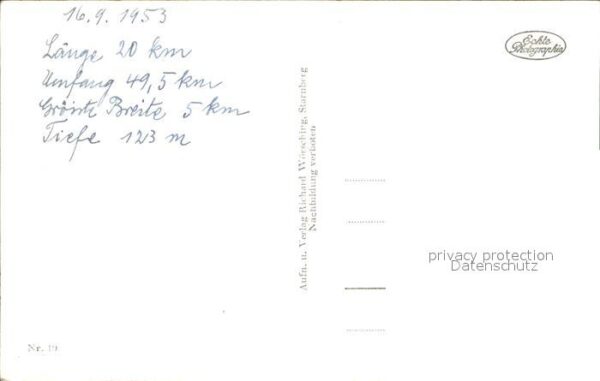 16.9.1953
Länge 20 km
Umfang 49,5 km
Größte Breite 5 km
Tiefe 123 m
Echte
Photographie
Aufn. u. Verlag Richard Wörsching, Starnberg
Nachbildung verboten
privacy protection
Datenschutz
Nr.